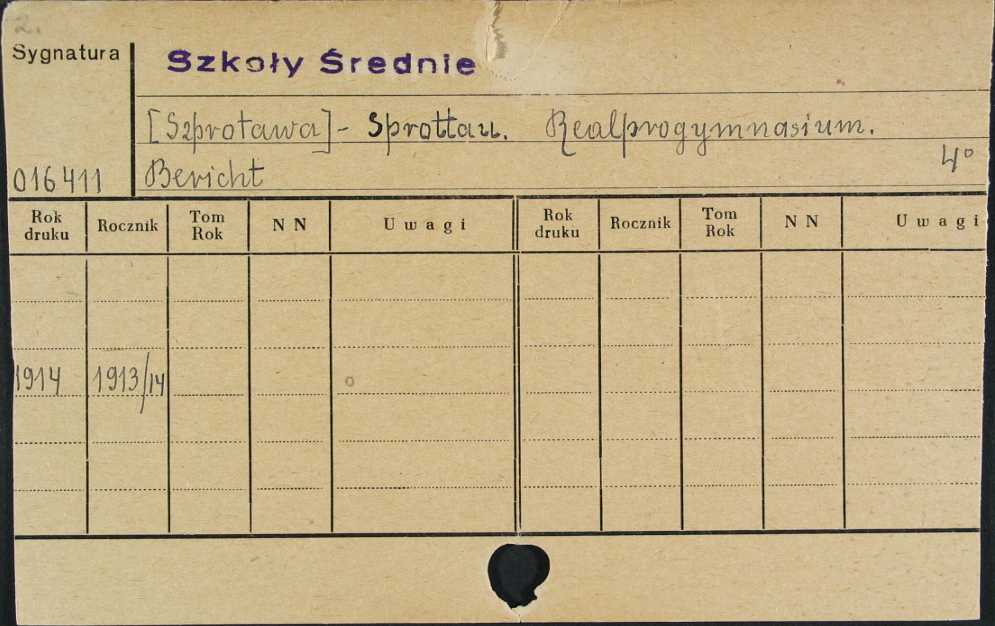 2.
Sygnatura
Szkoły Średnie
[Szprotawa] - Sprottau. Realprogymnasium.
4°
016411
Bericht
Rok druku Rocznik Tom Rok NN Uwagi Rok druku Rocznik Tom Rok NN Uwagi
1914 1913/14